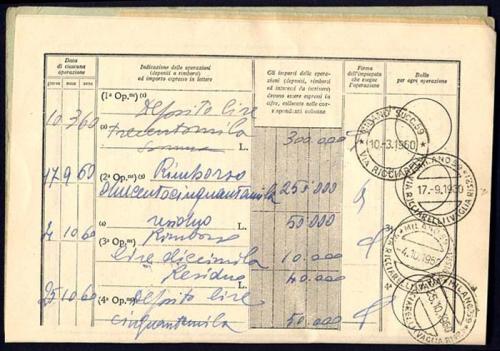 Data
di ciascuna
operazione
giorno mese anno
Indicazione delle operazioni
(depositi o rimborsi)
ed importo espresso in lettere
Gli importi delle opera-
zioni (depositi, rimborsi
ed interessi da iscrivere)
devono essere espressi in
cifre, collocate nelle cor-
rispondenti colonne
Firma
dell'impiegato
che esegue
l'operazione
Bollo
per ogni operazione
10 3 60 (1ª Op.ne) (2) Deposito lire
trecentomila
L. 300.000
MILANO SUCC. 39
10-3.1960
VIA RICCIARELLI
17 9 60 (2ª Op.ne) Rimborso
duecentocinquantamila 250.000
17.-9.1960
(2) residuo L. 50.000
4 10 60 (3ª Op.ne) Rimborso
lire diecimila 10.000
Residuo 40.000
4.10.1960
25 10 60 (4ª Op.ne) Deposito lire
cinquantamila 50.000
25.10.1960